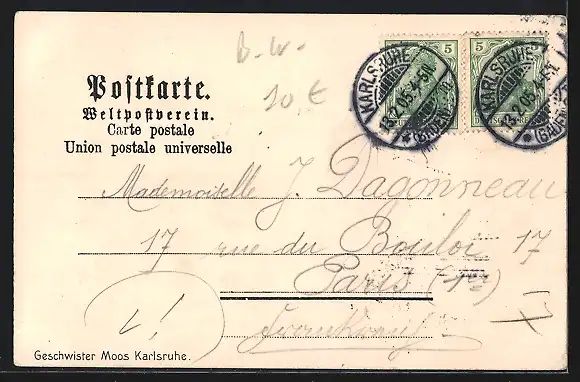 B. W.
10 €
5 5
KARLSRUHE
(BADEN)
KARLSRUHE
(BADEN)
Postkarte.
Weltpostverein.
Carte postale
Union postale universelle
Mademoiselle J. Dagonneau
17 rue du Bouloi 17
Paris (1er)
Frankreich
Geschwister Moos Karlsruhe.